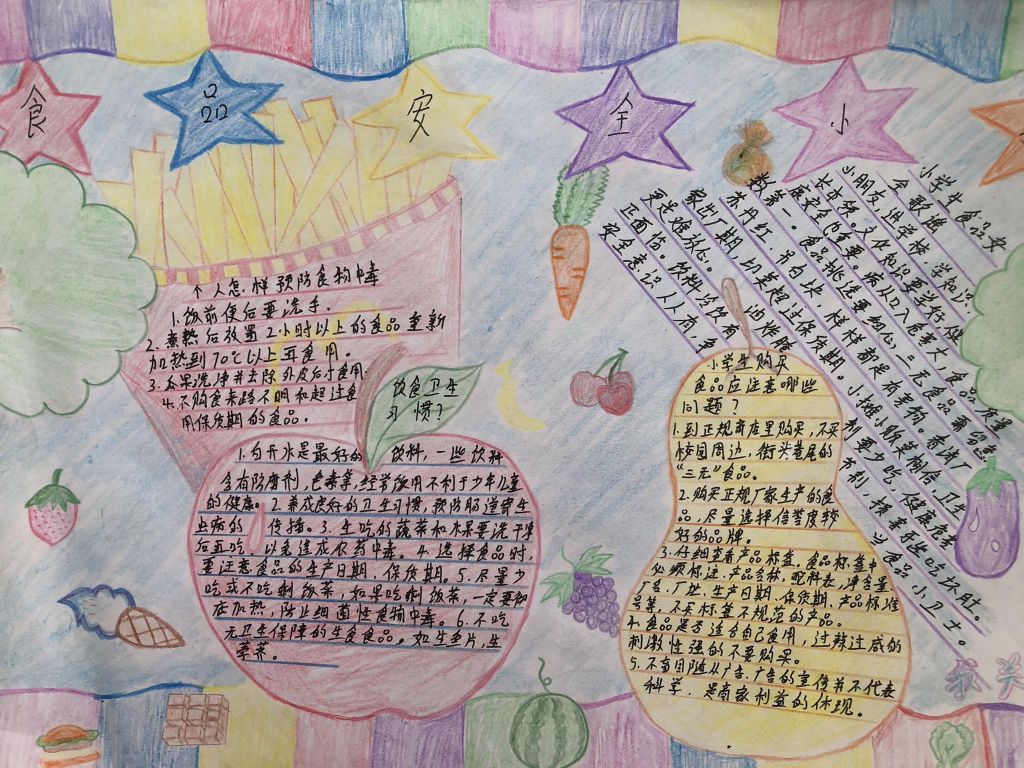 食 品 安 全 小
个人怎样预防食物中毒
1.饭前便后要洗手.
2.煮熟后放置2小时以上的食品重新
加热到70℃以上再食用。
3.瓜果洗净并去除外皮后才食用.
4.不购食来路不明和超过食
用保质期的食品。
饮食卫生
习惯?
1.白开水是最好的饮料,一些饮料
含有防腐剂,色素等,经常饮用不利于少年儿童
的健康。2.养成良好的卫生习惯,预防肠道寄生
虫病的传播。3.生吃的蔬菜和水果要洗干净
后再吃,以免造成农药中毒。4.选择食品时,
要注意食品的生产日期、保质期。5.尽量少
吃或不吃剩饭菜,如果吃剩饭菜,一定要彻
底加热,防止细菌性食物中毒。6.不吃
无卫生保障的生食食品。如生鱼片,生
荸荠。
小学生食品安
全歌谣
小朋友,进学校,学知识,
长本领,文化知识要学好,健
康安全也重要。病从口入食事大,食品质量
数第一。食品挑选要细心,三无食品需留意。
苏丹红、吊白块,样样都是有害物。看清厂
家出厂期,切莫超过保质期。小摊小贩莫相信,卫生
更是难放心。油炸腌
正面临。饮料没所有
安全意识人人有,争
小学生购买
食品应注意哪些
问题?
1.到正规商店里购买,不买
校园周边、街头巷尾的
“三无”食品。
2.购买正规厂家生产的食
品,尽量选择信誉度较
好的品牌。
3.仔细查看产品标签。食品标签中
必须标注:产品名称、配料表、净含量、
厂名、厂址、生产日期、保质期、产品标准
号等,不买标签不规范的产品。
4.食品是否适合自己食用,过辣过咸的
刺激性强的不要购买。
5.不盲目随从广告,广告的宣传并不代表
科学,是商家利益的体现。